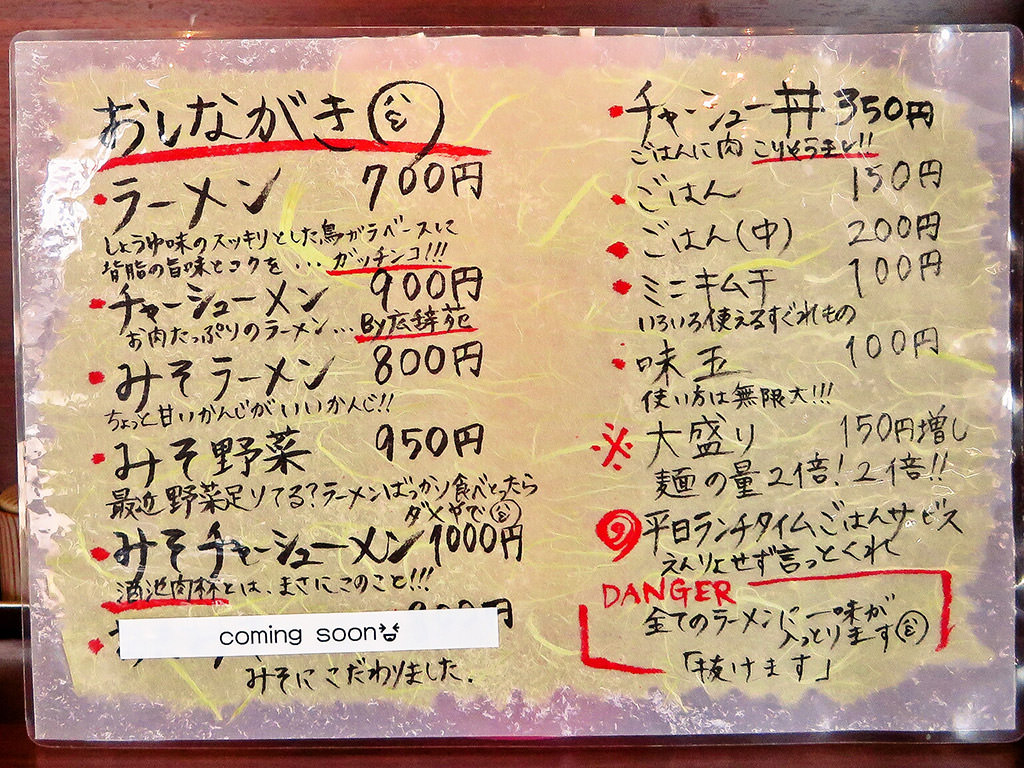 おしながき
・ラーメン 700円
しょうゆ味のスッキリとした鳥ガラベースに
背脂の旨味とコクを…ガッチンコ!!!
・チャーシューメン 900円
お肉たっぷりのラーメン…By広辞苑
・みそラーメン 800円
ちょっと甘いかんじがいいかんじ!!
・みそ野菜 950円
最近野菜足りてる?ラーメンばっかり食べとったら
ダメやで
・みそチャーシューメン 1000円
酒池肉林とは、まさにこのこと!!!
coming soon
みそにこだわりました.
・チャーシュー丼 350円
ごはんに肉 こりゃうまい!!
・ごはん 150円
・ごはん(中) 200円
・ミニキムチ 100円
いろいろ使えるすぐれもの
・味玉 100円
使い方は無限大!!!
※大盛り 150円増し
麺の量2倍!2倍!!
平日ランチタイムごはんサービス
えんりょせず言っとくれ
DANGER
全てのラーメンに一味が
入っとります
「抜けます」